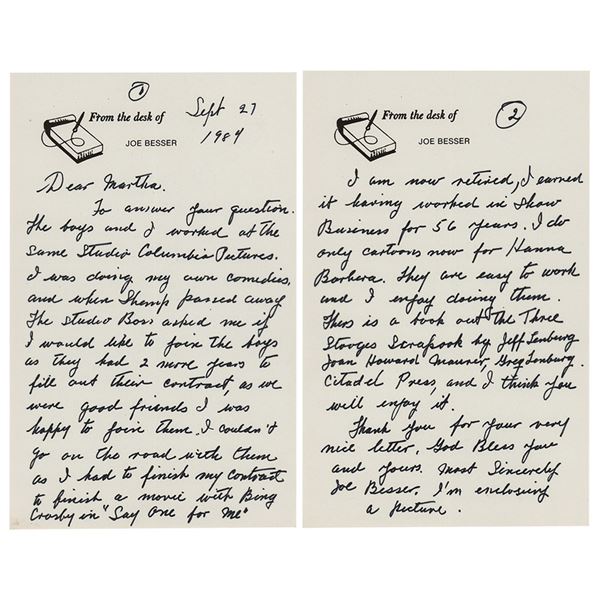 1
From the desk of
JOE BESSER
Sept 27
1984
Dear Martha.
To answer your question.
The boys and I worked at the
same Studio Columbia Pictures.
I was doing my own comedies,
and when Shemp passed away
The studio Boss asked me if
I would like to join the boys
as they had 2 more years to
fill out their contract, as we
were good friends I was
happy to join them. I couldn't
go on the road with them
as I had to finish my contract
to finish a movie with Bing
Crosby in "Say One for Me"
2
From the desk of
JOE BESSER
I am now retired, I earned
it having worked in Show
Business for 56 years. I do
only cartoons now for Hanna
Barbera. They are easy to work
and I enjoy doing them.
Thers is a book out the Three
Stooges Scrapbook by Jeff Lenburg
Joan Howard Maurer, Greg Lenburg.
Citadel Press, and I think you
will enjoy it.
Thank you for your very
nice letter. God Bless you
and yours. Most Sincerely
Joe Besser. I'm enclosing
a picture.